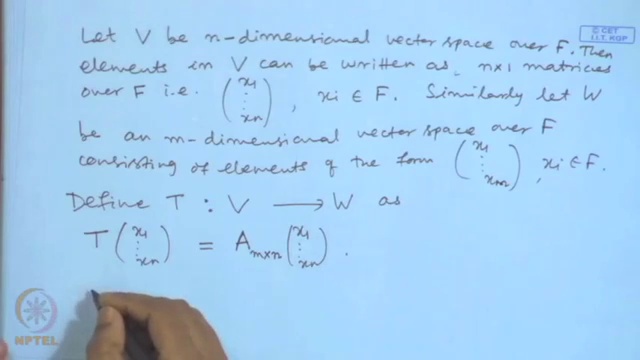 © CET
I.I.T. KGP
Let V be n-dimensional vector space over F. Then
elements in V can be written as, n×1 matrices
over F i.e. (x1 ⋮ xn), xi ∈ F. Similarly let W
be an m-dimensional vector space over F
consisting of elements of the form (x1 ⋮ xm), xi ∈ F.
Define T : V ⟶ W as
T (x1 ⋮ xn) = A m×n (x1 ⋮ xn).
NPTEL